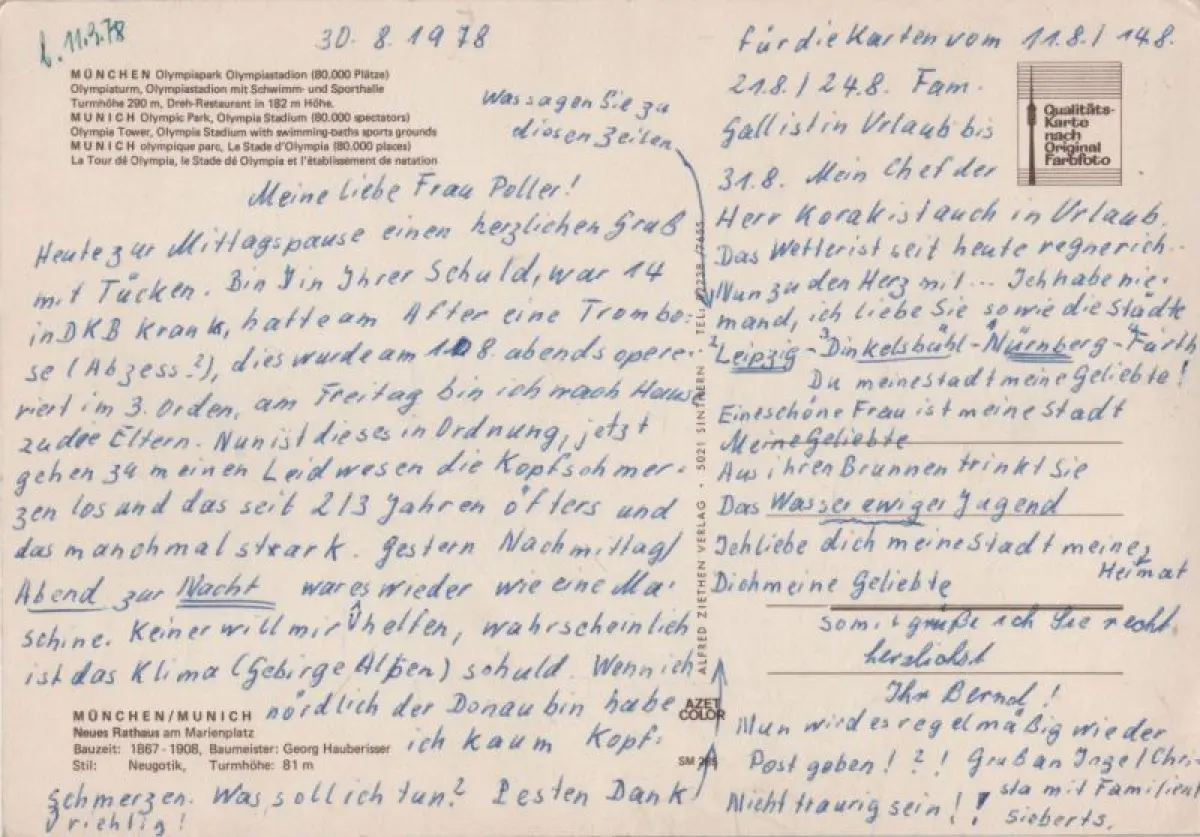 b. 11.9.78
30. 8. 1978
MÜNCHEN Olympiapark Olympiastadion (80.000 Plätze)
Olympiaturm, Olympiastadion mit Schwimm- und Sporthalle
Turmhöhe 290 m, Dreh-Restaurant in 182 m Höhe.
MUNICH Olympic Park, Olympia Stadium (80.000 spectators)
Olympia Tower, Olympia Stadium with swimming-baths sports grounds
MUNICH olympique parc, Le Stade d'Olympia (80.000 places)
La Tour dé Olympia, le Stade dé Olympia et l'établissement de natation
Was sagen Sie zu
diesen Zeilen
Meine liebe Frau Poller!
Heute zur Mittagspause einen herzlichen Gruß
mit Tücken. Bin in Ihrer Schuld, war 14
in DKB Krank, hatte am After eine Trombo-
se (Abzess?), dies wurde am 8. abends opere-
riert im 3. Orden, am Freitag bin ich nach Hause
zu die Eltern. Nun ist dieses in Ordnung, jetzt
gehen zu meinen Leidwesen die Kopfschmer-
zen los und das seit 2/3 Jahren öfters und
das manchmal stark. Gestern Nachmittag/
Abend zur Nacht war es wieder wie eine Ma-
schine. Keiner will mir helfen, wahrscheinlich
ist das Klima (Gebirge Alpen) schuld. Wenn ich
nördlich der Donau bin habe
ich kaum Kopf-
schmerzen. Was soll ich tun? Besten Dank
richtig!
MÜNCHEN/MUNICH
Neues Rathaus am Marienplatz
Bauzeit: 1867-1908, Baumeister: Georg Hauberisser
Stil: Neugotik, Turmhöhe: 81 m
ALFRED ZIETHEN VERLAG · 5021 SINTHERN · TEL.
AZET
COLOR
SM
für die Karten vom 11.8./14.8.
21.8./24.8. Fam.
Gall ist in Urlaub bis
31.8. Mein Chef der
Herr Korak ist auch in Urlaub.
Das Wetter ist seit heute regnerich..
Nun zu den Herz mit... Ich habe nie-
mand, ich liebe Sie sowie die Städte
2 Leipzig - 3 Dinkelsbühl - 1 Nürnberg - 4 Fürth
Du meine Stadt meine Geliebte!
Eine schöne Frau ist meine Stadt
Meine Geliebte
Aus ihren Brunnen trinkt Sie
Das Wasser ewiger Jugend
Ich liebe dich meine Stadt meine
Heimat
Dich meine Geliebte
Somit grüße ich Sie recht
herzlichst
Ihr Bernd!
Nun wird es regelmäßig wieder
Post geben! ? ! Gruß an Inge/Chri-
sta mit Familien
Nicht traurig sein!!
Sieberts.
Qualitäts-
Karte
nach
Original
Farbfoto